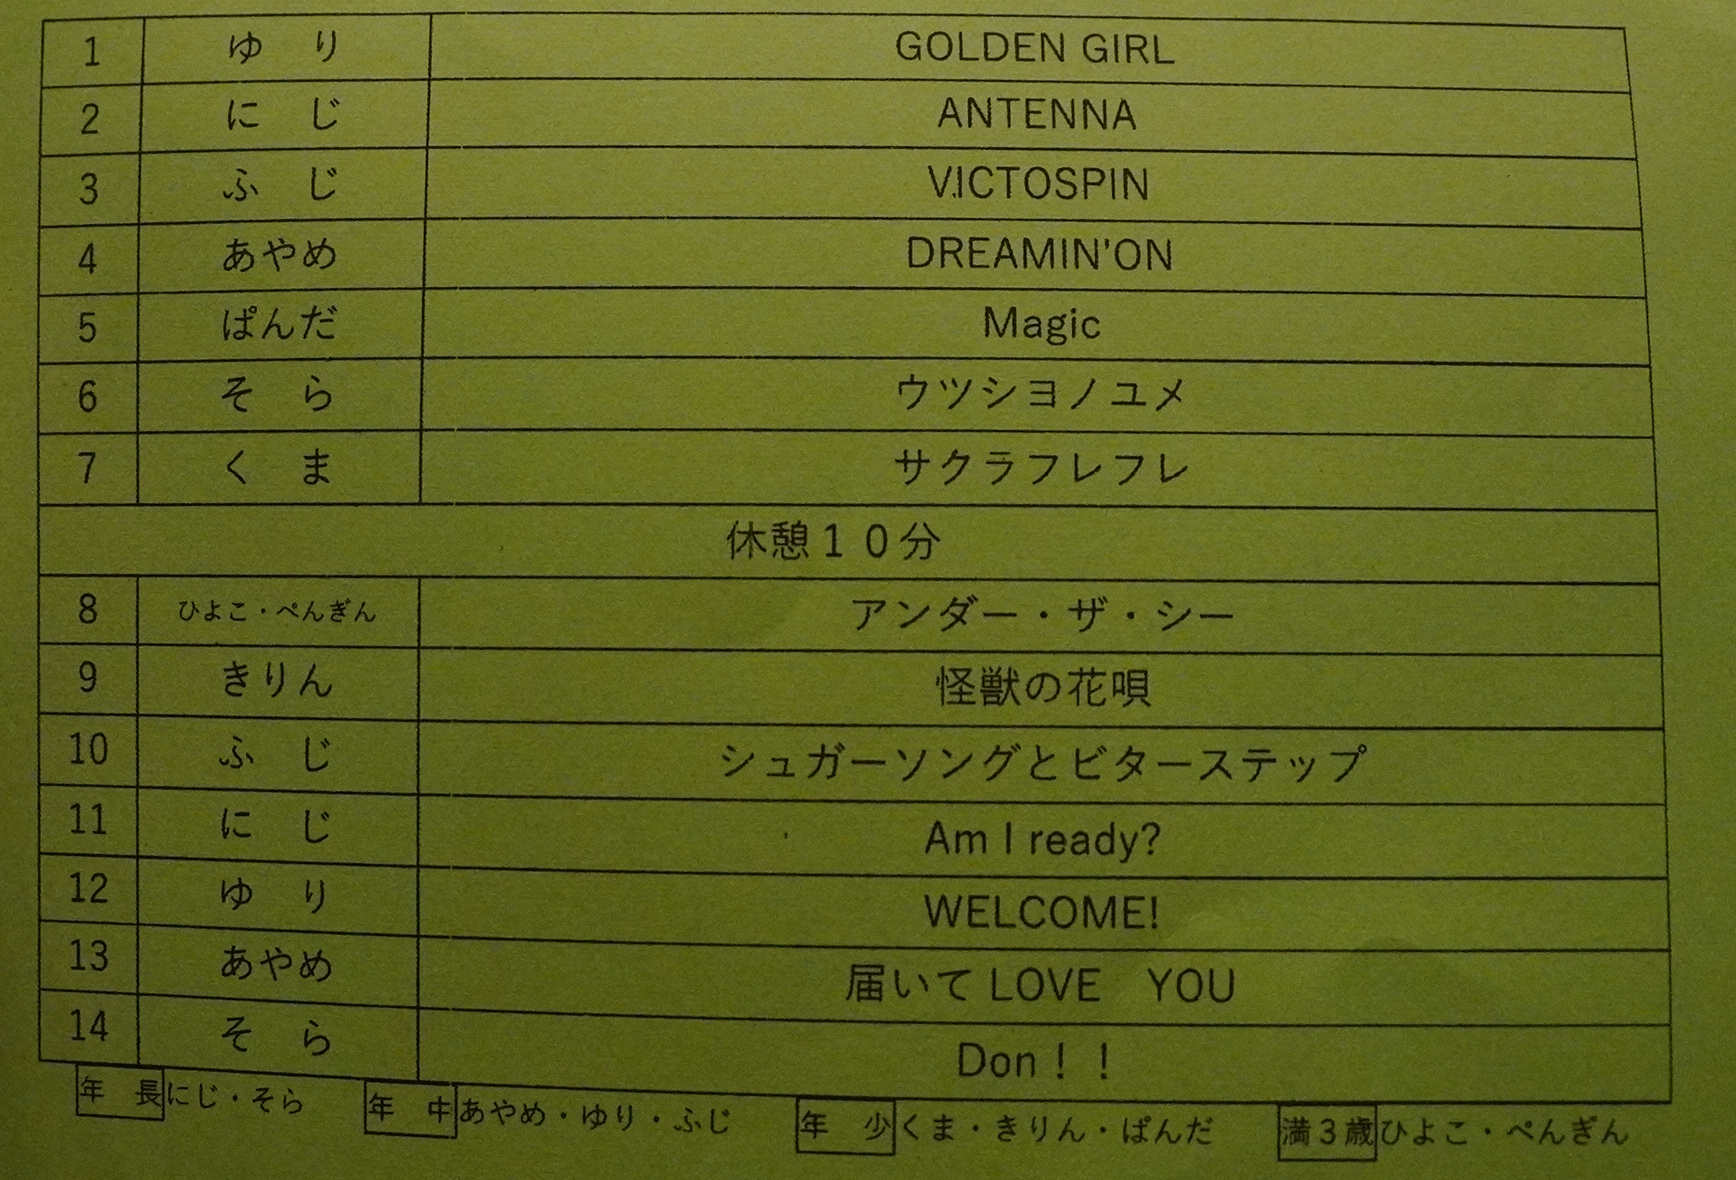 1 ゆ　り GOLDEN GIRL
2 に　じ ANTENNA
3 ふ　じ VICTOSPIN
4 あやめ DREAMIN'ON
5 ぱんだ Magic
6 そ　ら ウツシヨノユメ
7 く　ま サクラフレフレ
休憩１０分
8 ひよこ・ぺんぎん アンダー・ザ・シー
9 きりん 怪獣の花唄
10 ふ　じ シュガーソングとビターステップ
11 に　じ Am I ready?
12 ゆ　り WELCOME!
13 あやめ 届いて LOVE　YOU
14 そ　ら Don！！
年　長 にじ・そら 年　中 あやめ・ゆり・ふじ 年　少 くま・きりん・ぱんだ 満３歳 ひよこ・ぺんぎん